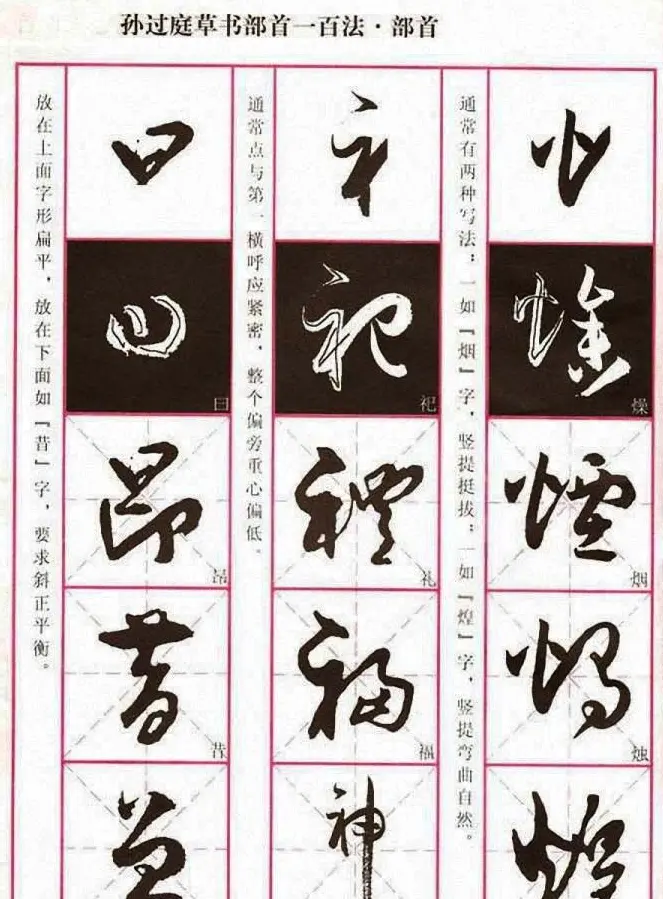 孙过庭草书部首一百法·部首
通常有两种写法：一如『烟』字，竖提挺拔；一如『煌』字，竖提弯曲自然。
火
燥
烟
烛
通常点与第一横呼应紧密，整个偏旁重心偏低。
礻
祀
礼
福
神
放在上面字形扁平，放在下面如『昔』字，要求斜正平衡。
日
曰
昂
昔